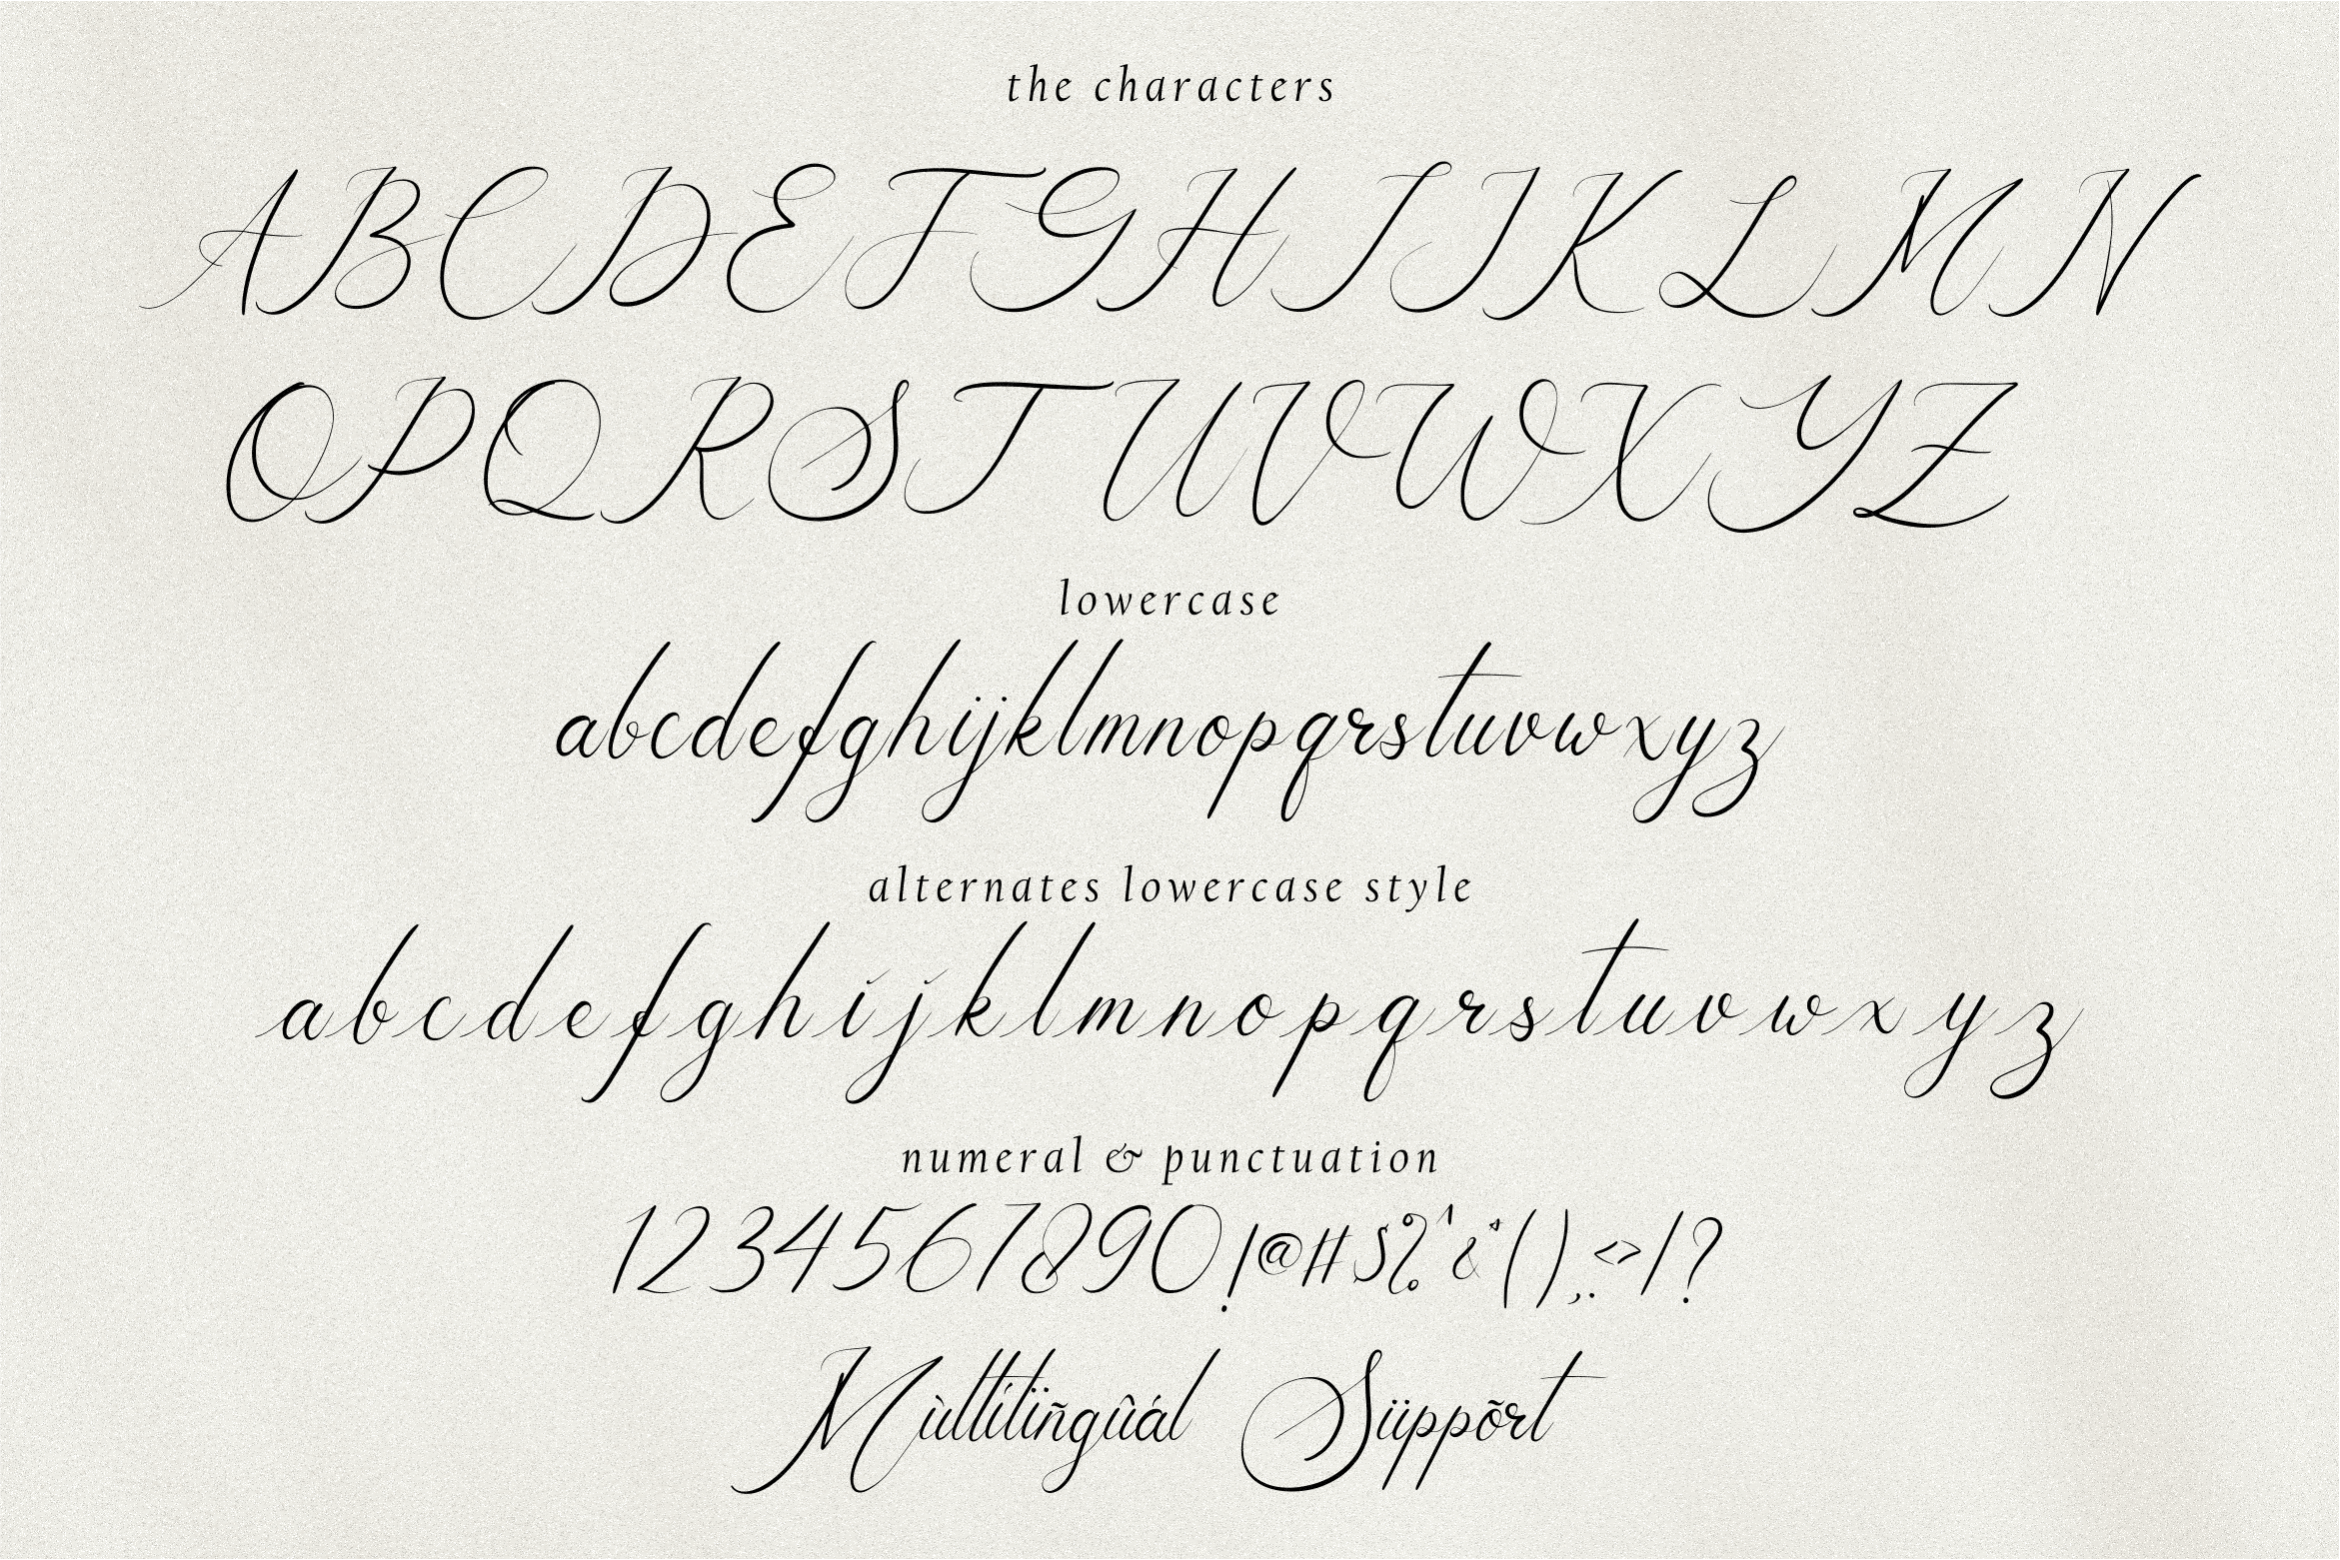 the characters
A B C D E F G H I J K L M N
O P Q R S T U V W X Y Z
lowercase
abcdefghijklmnopqrstuvwxyz
alternates lowercase style
a b c d e f g h i j k l m n o p q r s t u v w x y z
numeral & punctuation
1234567890!@#$%^&*(),.<>/?
Mùltílïñgûál Süppõrt